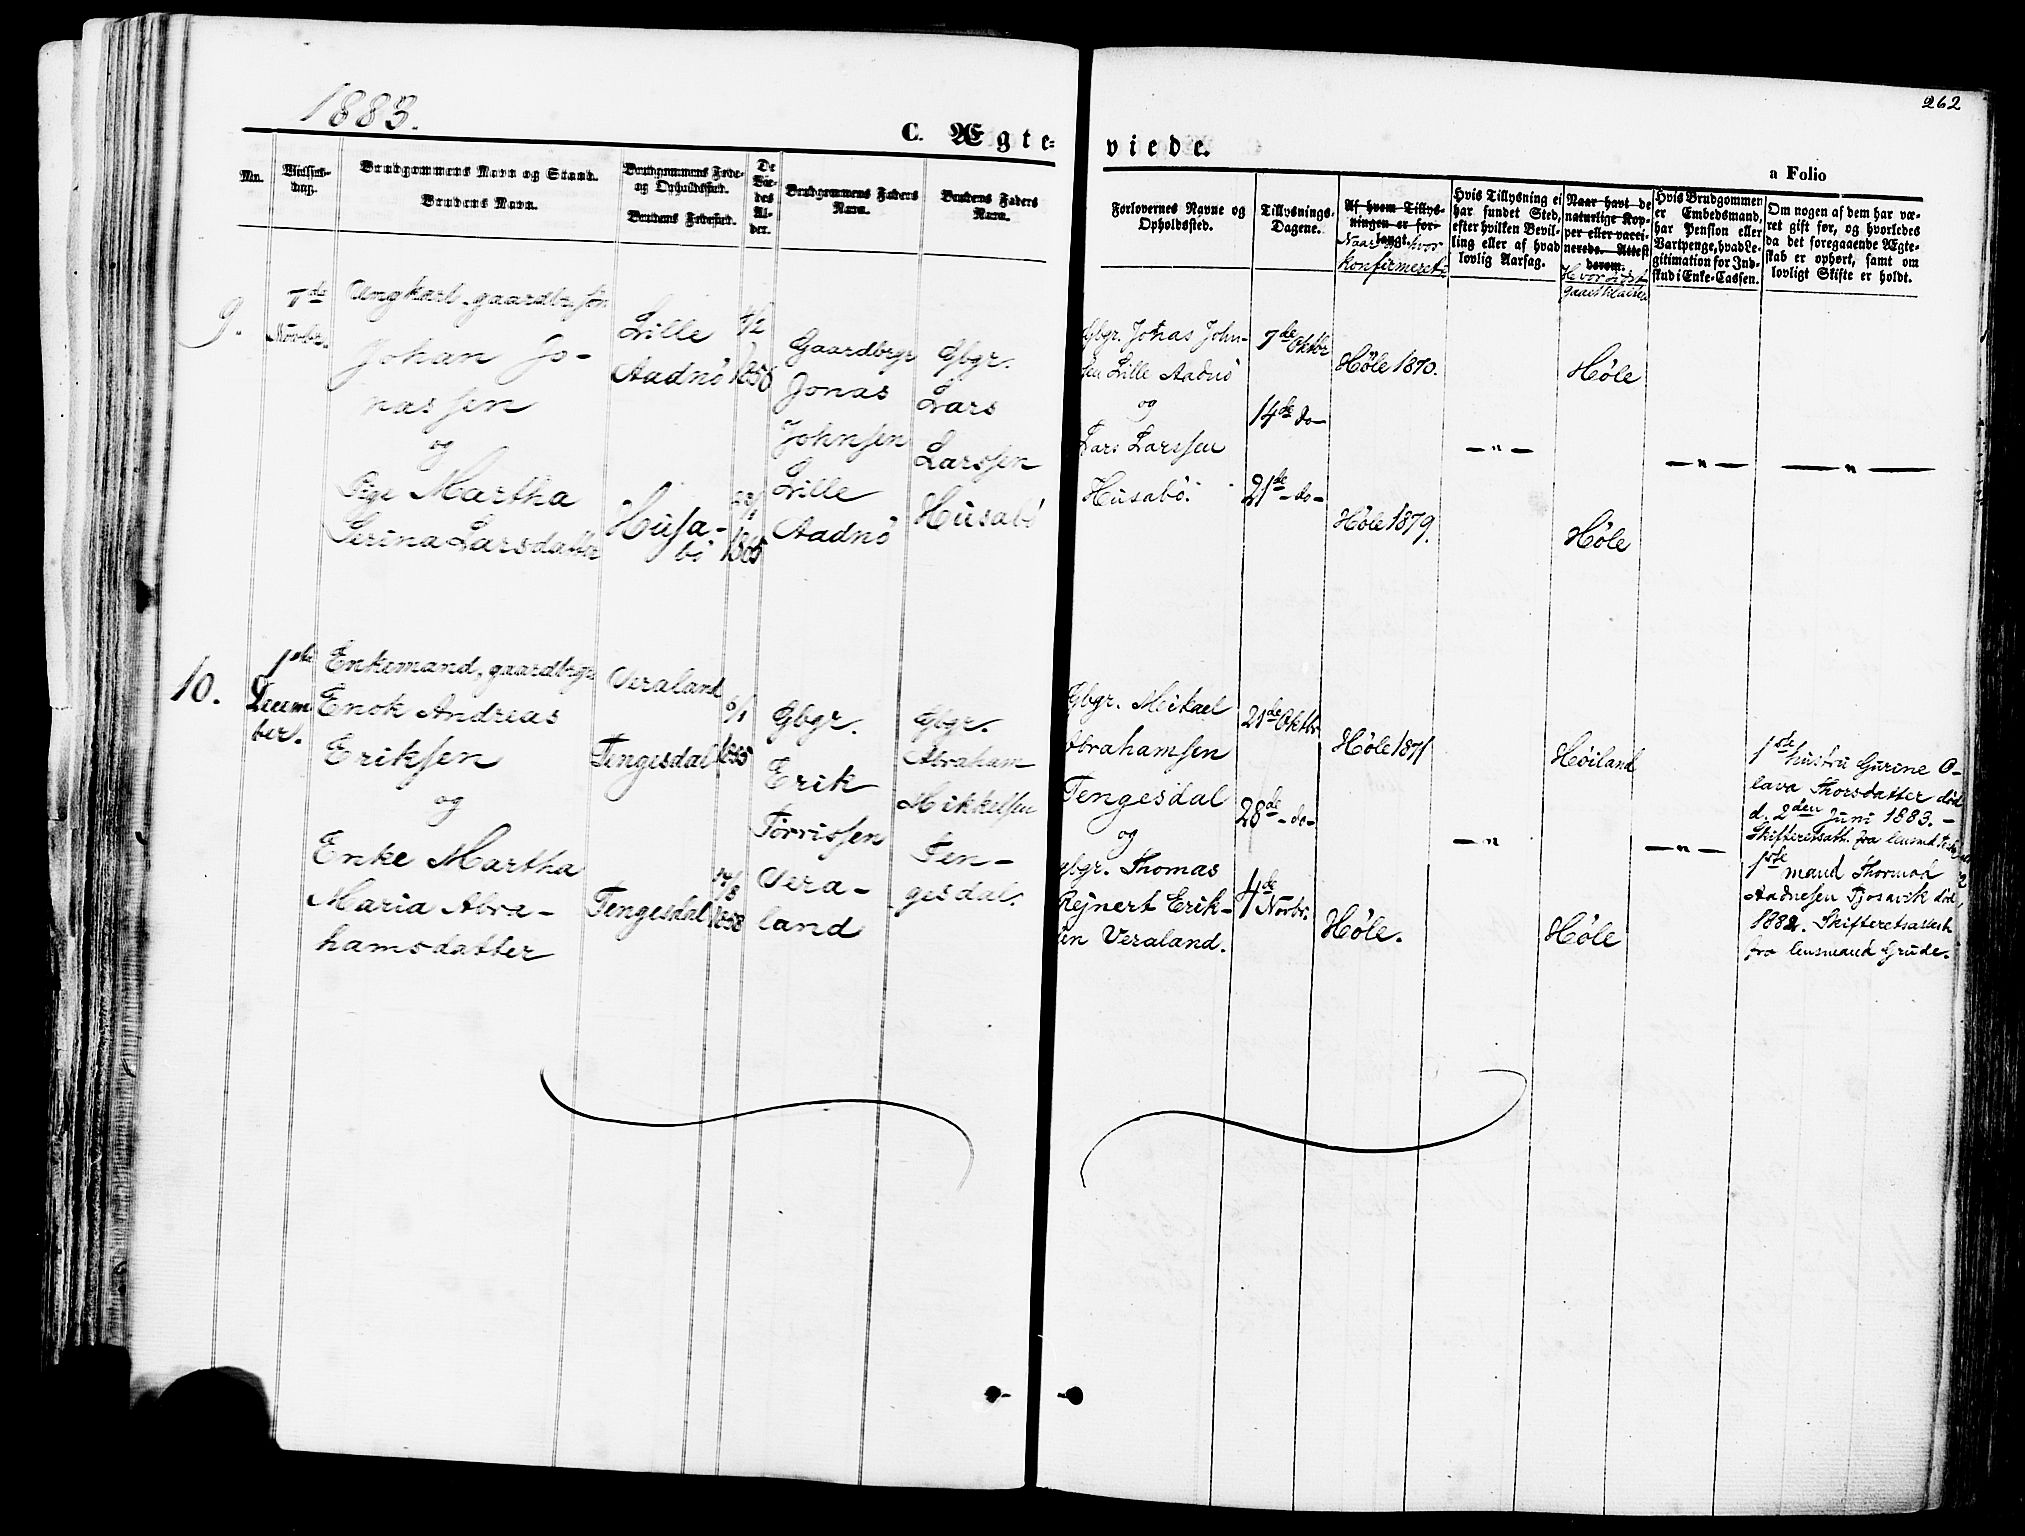 262
1883.
C. Ægte-
viede.
a Folio
Nr.
Vielses-
dag.
Brudgommens Navn og Stand.
Brudens Navn.
Brudgommens Føde-
og Opholdssted.
Brudens Fødested.
De
Vie-
des
Al-
der.
Brudgommens Faders
Navn.
Brudens Faders
Navn.
Forlovernes Navne og
Opholdssted.
Tillysnings-
Dagene.
Af hvem Tillys-
ningen er for-
langt.
Naar og hvor
konfirmeret.
Hvis Tillysning ei
har fundet Sted,
efter hvilken Bevil-
ling eller af hvad
lovlig Aarsag.
Naar havt de
naturlige Kop-
per eller vacci-
nerede. Attest
derom.
Hvor sidst
Hvis Brudgommen
er Embedsmand,
har Pension eller
Vartpenge, hvad Le-
gitimation for Ind-
skud i Enke-Cassen.
Om nogen af dem har væ-
ret gift før, og hvorledes
da det foregaaende Ægte-
skab er ophørt, samt om
lovligt Skifte er holdt.
9.
7de
Novbr.
Ungkarl, gaardbr. søn
Johan Jo-
nassen
og
Pige Martha
Serina Larsdatter
Lille
Aadnö
Husa-
bö
1856
1865
Gaardbrgr
Jonas
Johnsen
Lille
Aadnö
Gbgr.
Lars
Larssen
Husabö
Gbgr. Jonas John-
sen Lille Aadnö
og
Lars Larssen
Husabö.
7de Oktbr
14de do
21de do
Høle 1870.
Høle 1879.
— " —
Høle
Høle
— " —
— " —
10.
1ste
Decem-
ber.
Enkemand, gaardbrgr
Enok Andreas
Eriksen
og
Enke Martha
Maria Abra-
hamsdatter
Veraland
Tengesdal
Tengesdal
6/1
1855
14/8
1858
Gbgr.
Erik
Torrissen
Vera-
land
Gbgr.
Abraham
Mikkelsen
Ten-
gesdal.
Gbgr. Mikael
Abrahamsen
Tengesdal
og
gbgr. Thomas
Rejnert Erik-
sen Veraland.
21de Oktbr
28de do
4de Novbr.
Høle 1871
Høle.
— " —
Høiland
Høle
— " —
1ste hustru Gurine O-
lava Thorsdatter död
d. 2den Juni 1883. —
Skifteretsatt. fra lensmd
1ste mand Thormod
Aadnesen Tjosavik död
1882. Skifteretsattest
fra lensmand Grude.